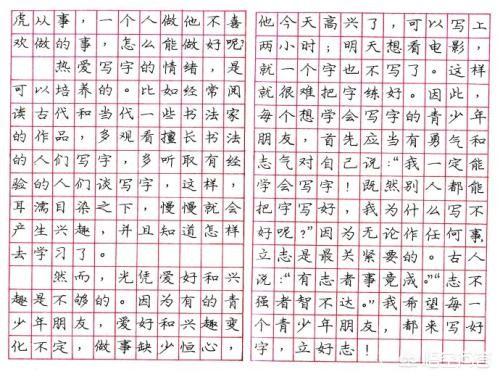 虎从事，一个人做他不喜
欢做的事，怎么能做好呢？
热爱写字的情绪，是
可以培养的。比如经常阅
读古代和当代一些书法家
的作品，多观看擅长书法
的人们写字，多听取有经
验的人们谈写字，这样，
耳濡目染之下，慢慢就会
产生兴趣，并且知道怎样
去学习了。
然而，光凭爱好和兴
趣是不够的。因为有的青
少年朋友，爱好和兴趣变
化不定，做事缺少恒心，
他今天高兴了，可以写上
两小时；明天想看电影，
就一个字也不写了。这样
就很难把字练好。因此，
每个想学会写字的青少年
朋友，首先应当有勇气和
志气对自己说：“我一定能
学会写字！既然别人都能
把字写好，我为什么写不
好呢？”因为无论作任何事，
立志是最关紧要的。古人
说：“有志者事竟成。”“志不
强者智不达。”我希望每一
个青少年朋友，都来写好
字，立好志！